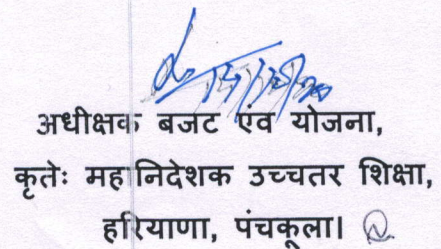 अधीक्षक बजट एंव योजना,
कृतेः महानिदेशक उच्चतर शिक्षा,
हरियाणा, पंचकूला।